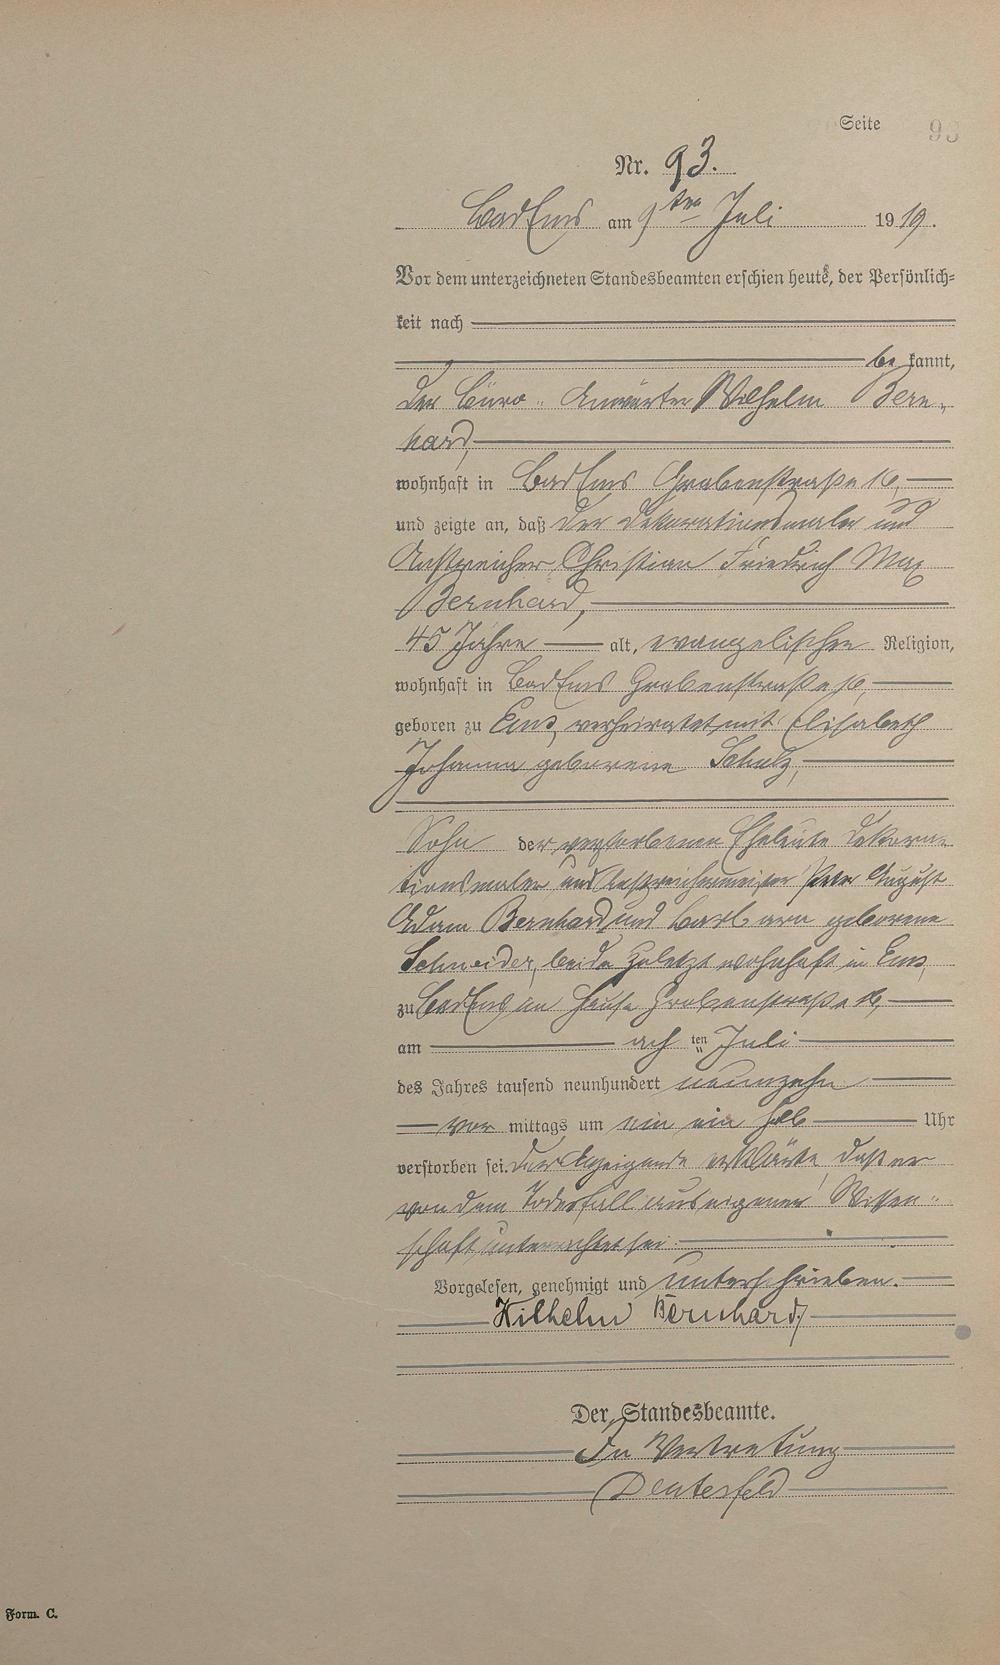 Seite 93
Nr. 93.
Bad Ems am 9ten Juli 1919.
Vor dem unterzeichneten Standesbeamten erschien heute, der Persönlich=
keit nach
be kannt,
der Büro- Anwärter Wilhelm Bern-
hard,
wohnhaft in Bad Ems Grabenstraße 16,
und zeigte an, daß der Dekorationsmaler und
Anstreicher, Christian Friedrich Max
Bernhard,
45 Jahre alt, evangelischer Religion,
wohnhaft in Bad Ems Grabenstraße 16,
geboren zu Ems, verheiratet mit Elisabeth
Johanna geborene Schulz,
Sohn der verstorbenen Eheleute Dekora-
tionsmaler und Anstreichermeister Peter August
Adam Bernhard und Barbara geborene
Schneider, beide zuletzt wohnhaft in Ems
zu Bad Ems im Hause Grabenstraße 16,
am ach ten Juli
des Jahres tausend neunhundert neunzehn
vor mittags um ein ein halb Uhr
verstorben sei. Der Anzeigende erklärte, daß er
von dem Todesfall aus eigener Wissen-
schaft unterrichtet sei.
Vorgelesen, genehmigt und unterschrieben.
Wilhelm Bernhard
Der Standesbeamte.
In Vertretung
Form. C.